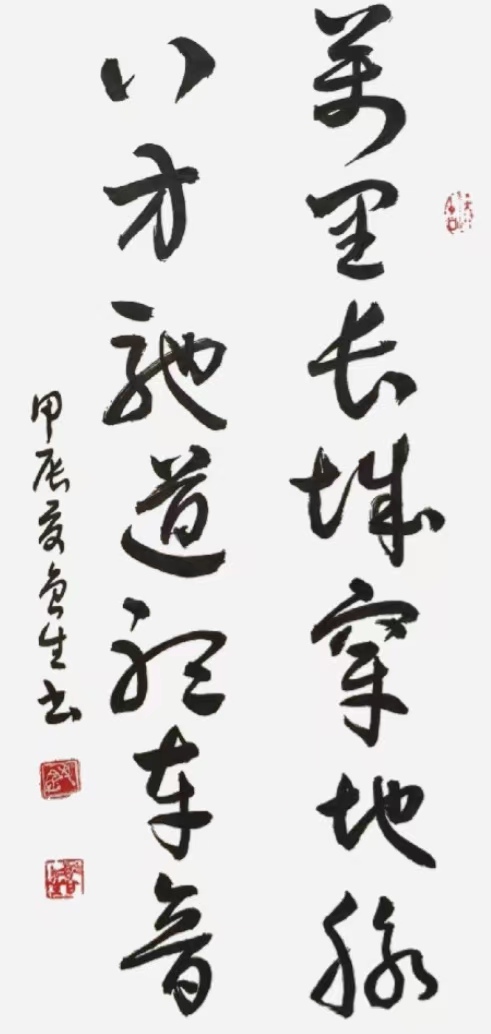 萬里长城穿地脉
八方馳道聽车音
甲辰夏魯生书